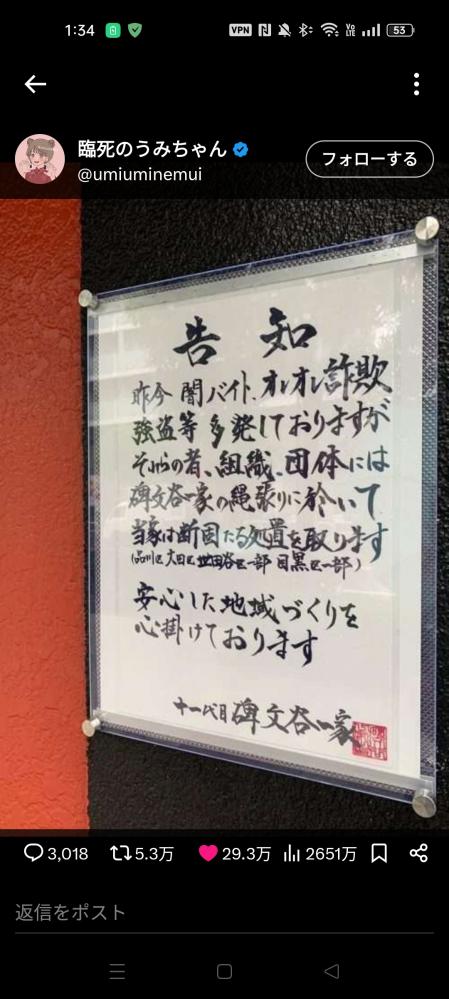 1:34 VPN Vo LTE 53
臨死のうみちゃん
@umiuminemui
フォローする
告知
昨今 闇バイト、オレオレ詐欺
強盗等 多発しておりますが
それらの者、組織、団体には
碑文谷一家の縄張りに於いて
当家は断固たる処置を取ります
(品川区 大田区 世田谷区一部 目黒区一部)
安心した地域づくりを
心掛けております
十一代目 碑文谷一家
3,018 5.3万 29.3万 2651万
返信をポスト